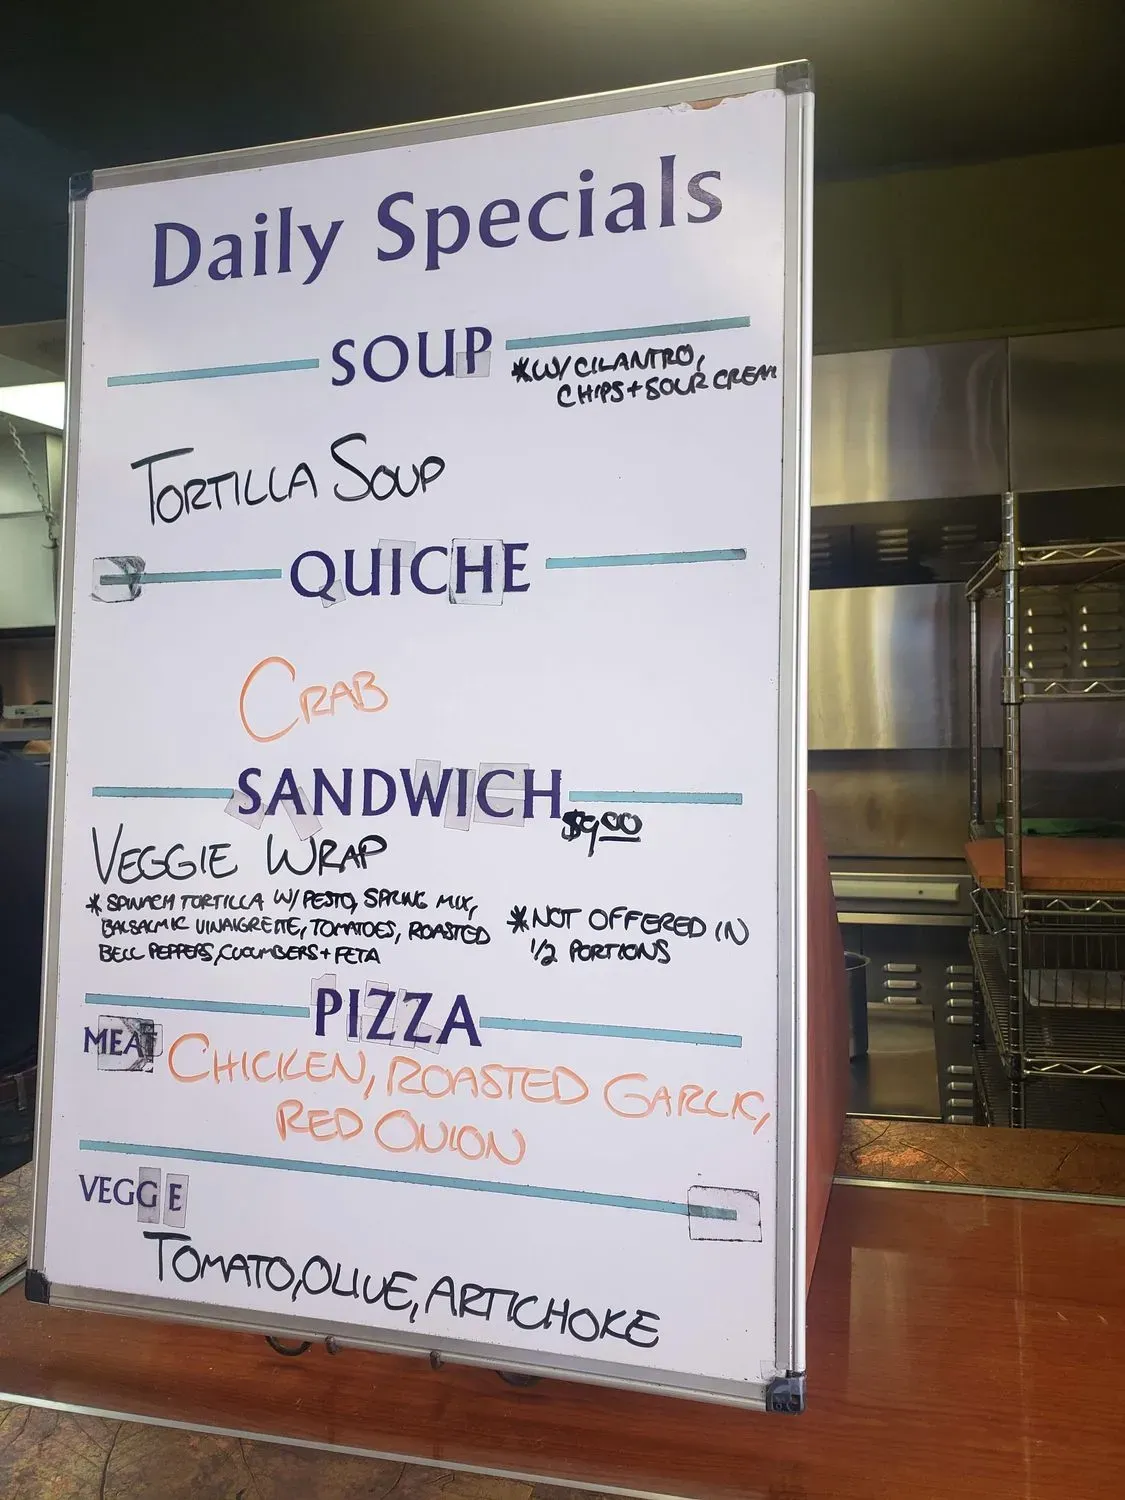 Daily Specials
SOUP
*W/ CILANTRO,
CHIPS + SOUR CREAM
TORTILLA SOUP
QUICHE
CRAB
SANDWICH
$9.00
VEGGIE WRAP
* SPINACH TORTILLA W/ PESTO, SPRING MIX,
BALSAMIC VINAIGRETTE, TOMATOES, ROASTED
BELL PEPPERS, CUCUMBERS + FETA
*NOT OFFERED IN
1/2 PORTIONS
PIZZA
MEAT
CHICKEN, ROASTED GARLIC,
RED ONION
VEGGIE
TOMATO, OLIVE, ARTICHOKE